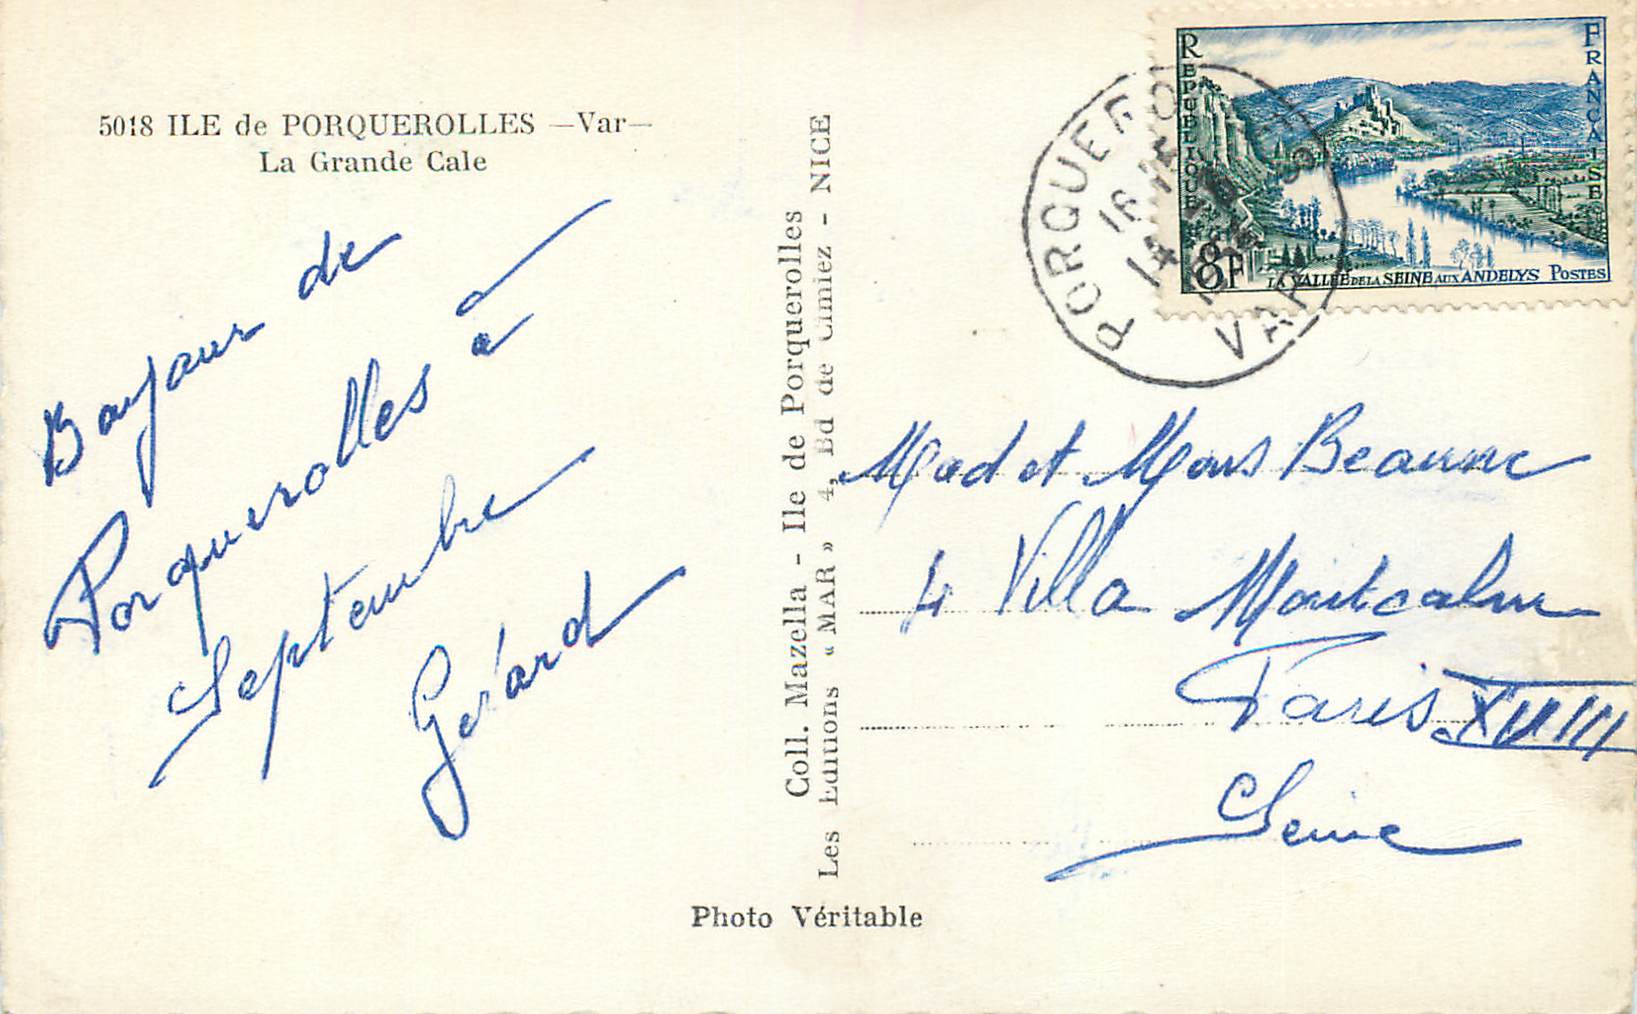 5018 ILE de PORQUEROLLES —Var—
La Grande Cale
Bonjour de
Porquerolles à
a
Septembre
Gérard
Coll. Mazella - Ile de Porquerolles
Les Editions « MAR » 4, Bd de Cimiez - NICE
REPUBLIQUE FRANÇAISE
8F LA VALLÉE DE LA SEINE AUX ANDELYS POSTES
PORQUEROLLES
16
14
VAR
Mad et Mons Beaune
4 Villa Montcalm
Paris XVIII
Seine
Photo Véritable